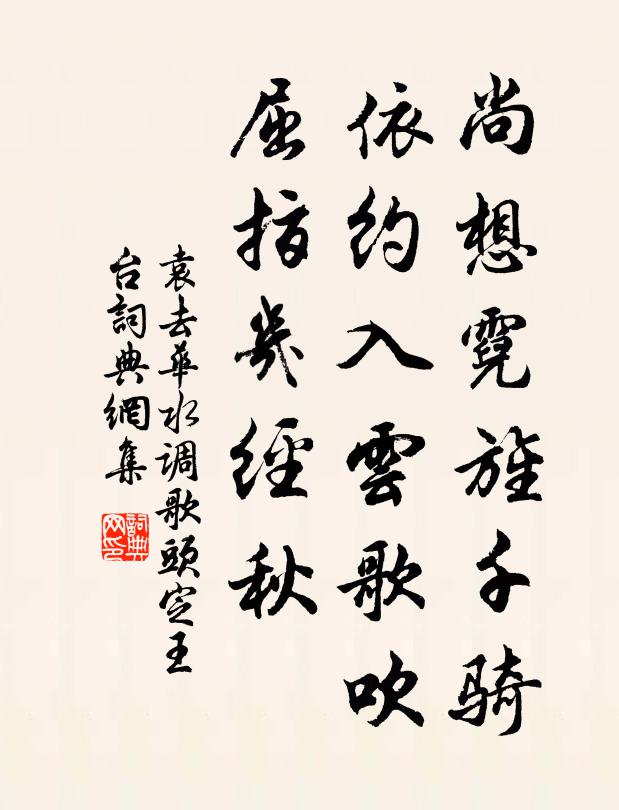 尚想霓旌千騎
依約入雲歌吹
屈指幾經秋
袁去華水调歌頭定王
台詞典網集
詞典网印